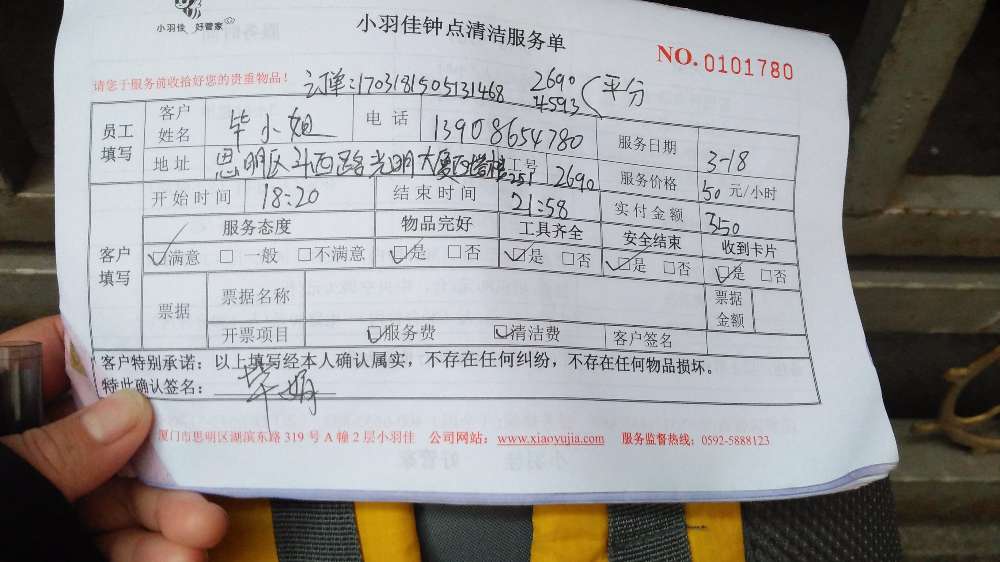 小羽佳 好管家
小羽佳钟点清洁服务单
NO.0101780
请您于服务前收拾好您的贵重物品！
云单:1703181505131468 2690 平分
4593
员工填写 客户姓名 毕小姐 电话 13908654780 服务日期 3-18
地址 思明区斗西路光明大厦 工号 2690 服务价格 50元/小时
开始时间 18:20 结束时间 21:58 实付金额 350
客户填写 服务态度 物品完好 工具齐全 安全结束 收到卡片
☑满意 □一般 □不满意 ☑是 □否 ☑是 □否 ☑是 □否 ☑是 □否
票据 票据名称 票据金额
开票项目 ☑服务费 ☑清洁费 客户签名
客户特别承诺：以上填写经本人确认属实，不存在任何纠纷，不存在任何物品损坏。
特此确认签名：毕娟
厦门市思明区湖滨东路 319 号 A 幢 2 层小羽佳 公司网站：www.xiaoyujia.com 服务监督热线：0592-5888123